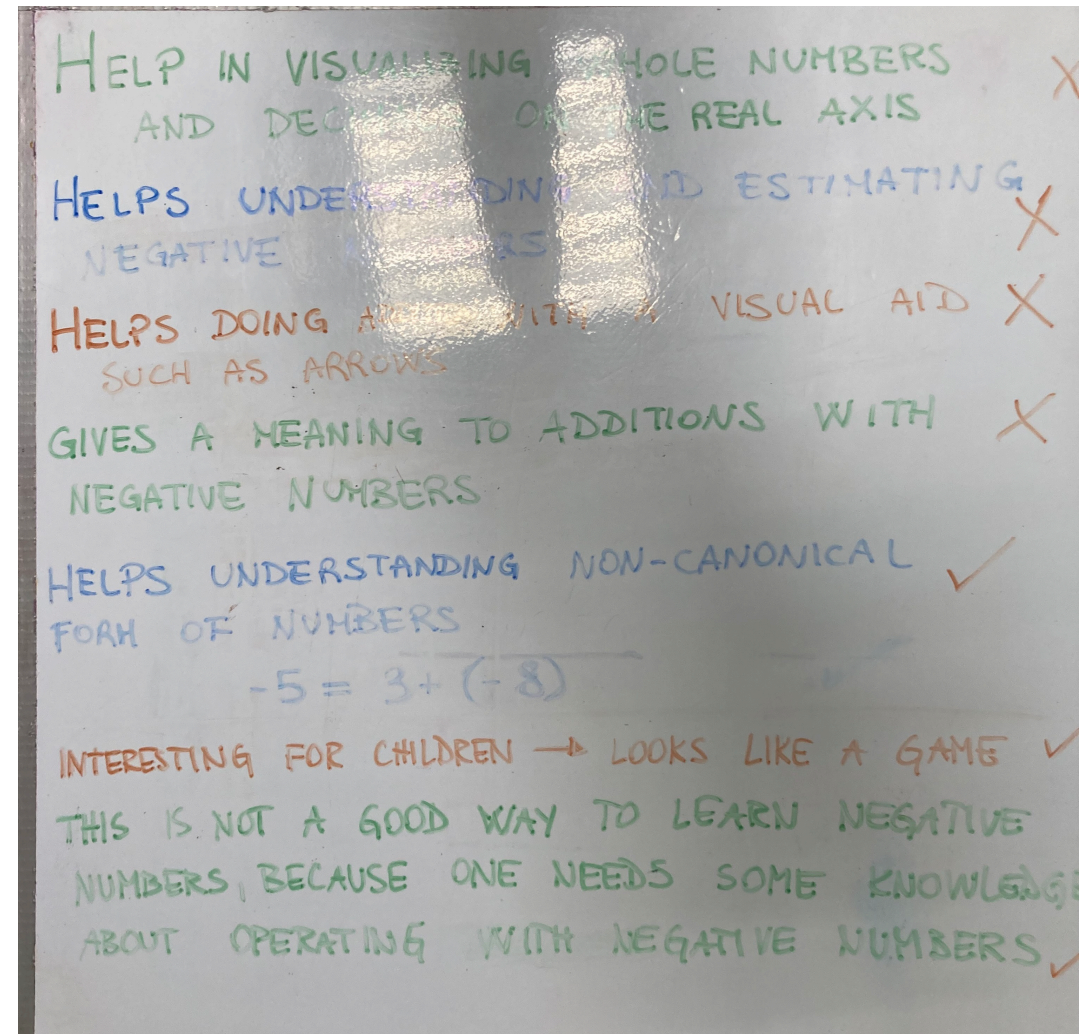 HELP IN VISUALIZING WHOLE NUMBERS X
AND ON THE REAL AXIS
HELPS UNDERSTANDING AND ESTIMATING X
NEGATIVE
HELPS DOING WITH A VISUAL AID X
SUCH AS ARROWS
GIVES A MEANING TO ADDITIONS WITH X
NEGATIVE NUMBERS
HELPS UNDERSTANDING NON-CANONICAL ✓
FORM OF NUMBERS
-5 = 3+ (-8)
INTERESTING FOR CHILDREN → LOOKS LIKE A GAME ✓
THIS IS NOT A GOOD WAY TO LEARN NEGATIVE
NUMBERS, BECAUSE ONE NEEDS SOME KNOWLEDGE
ABOUT OPERATING WITH NEGATIVE NUMBERS ✓